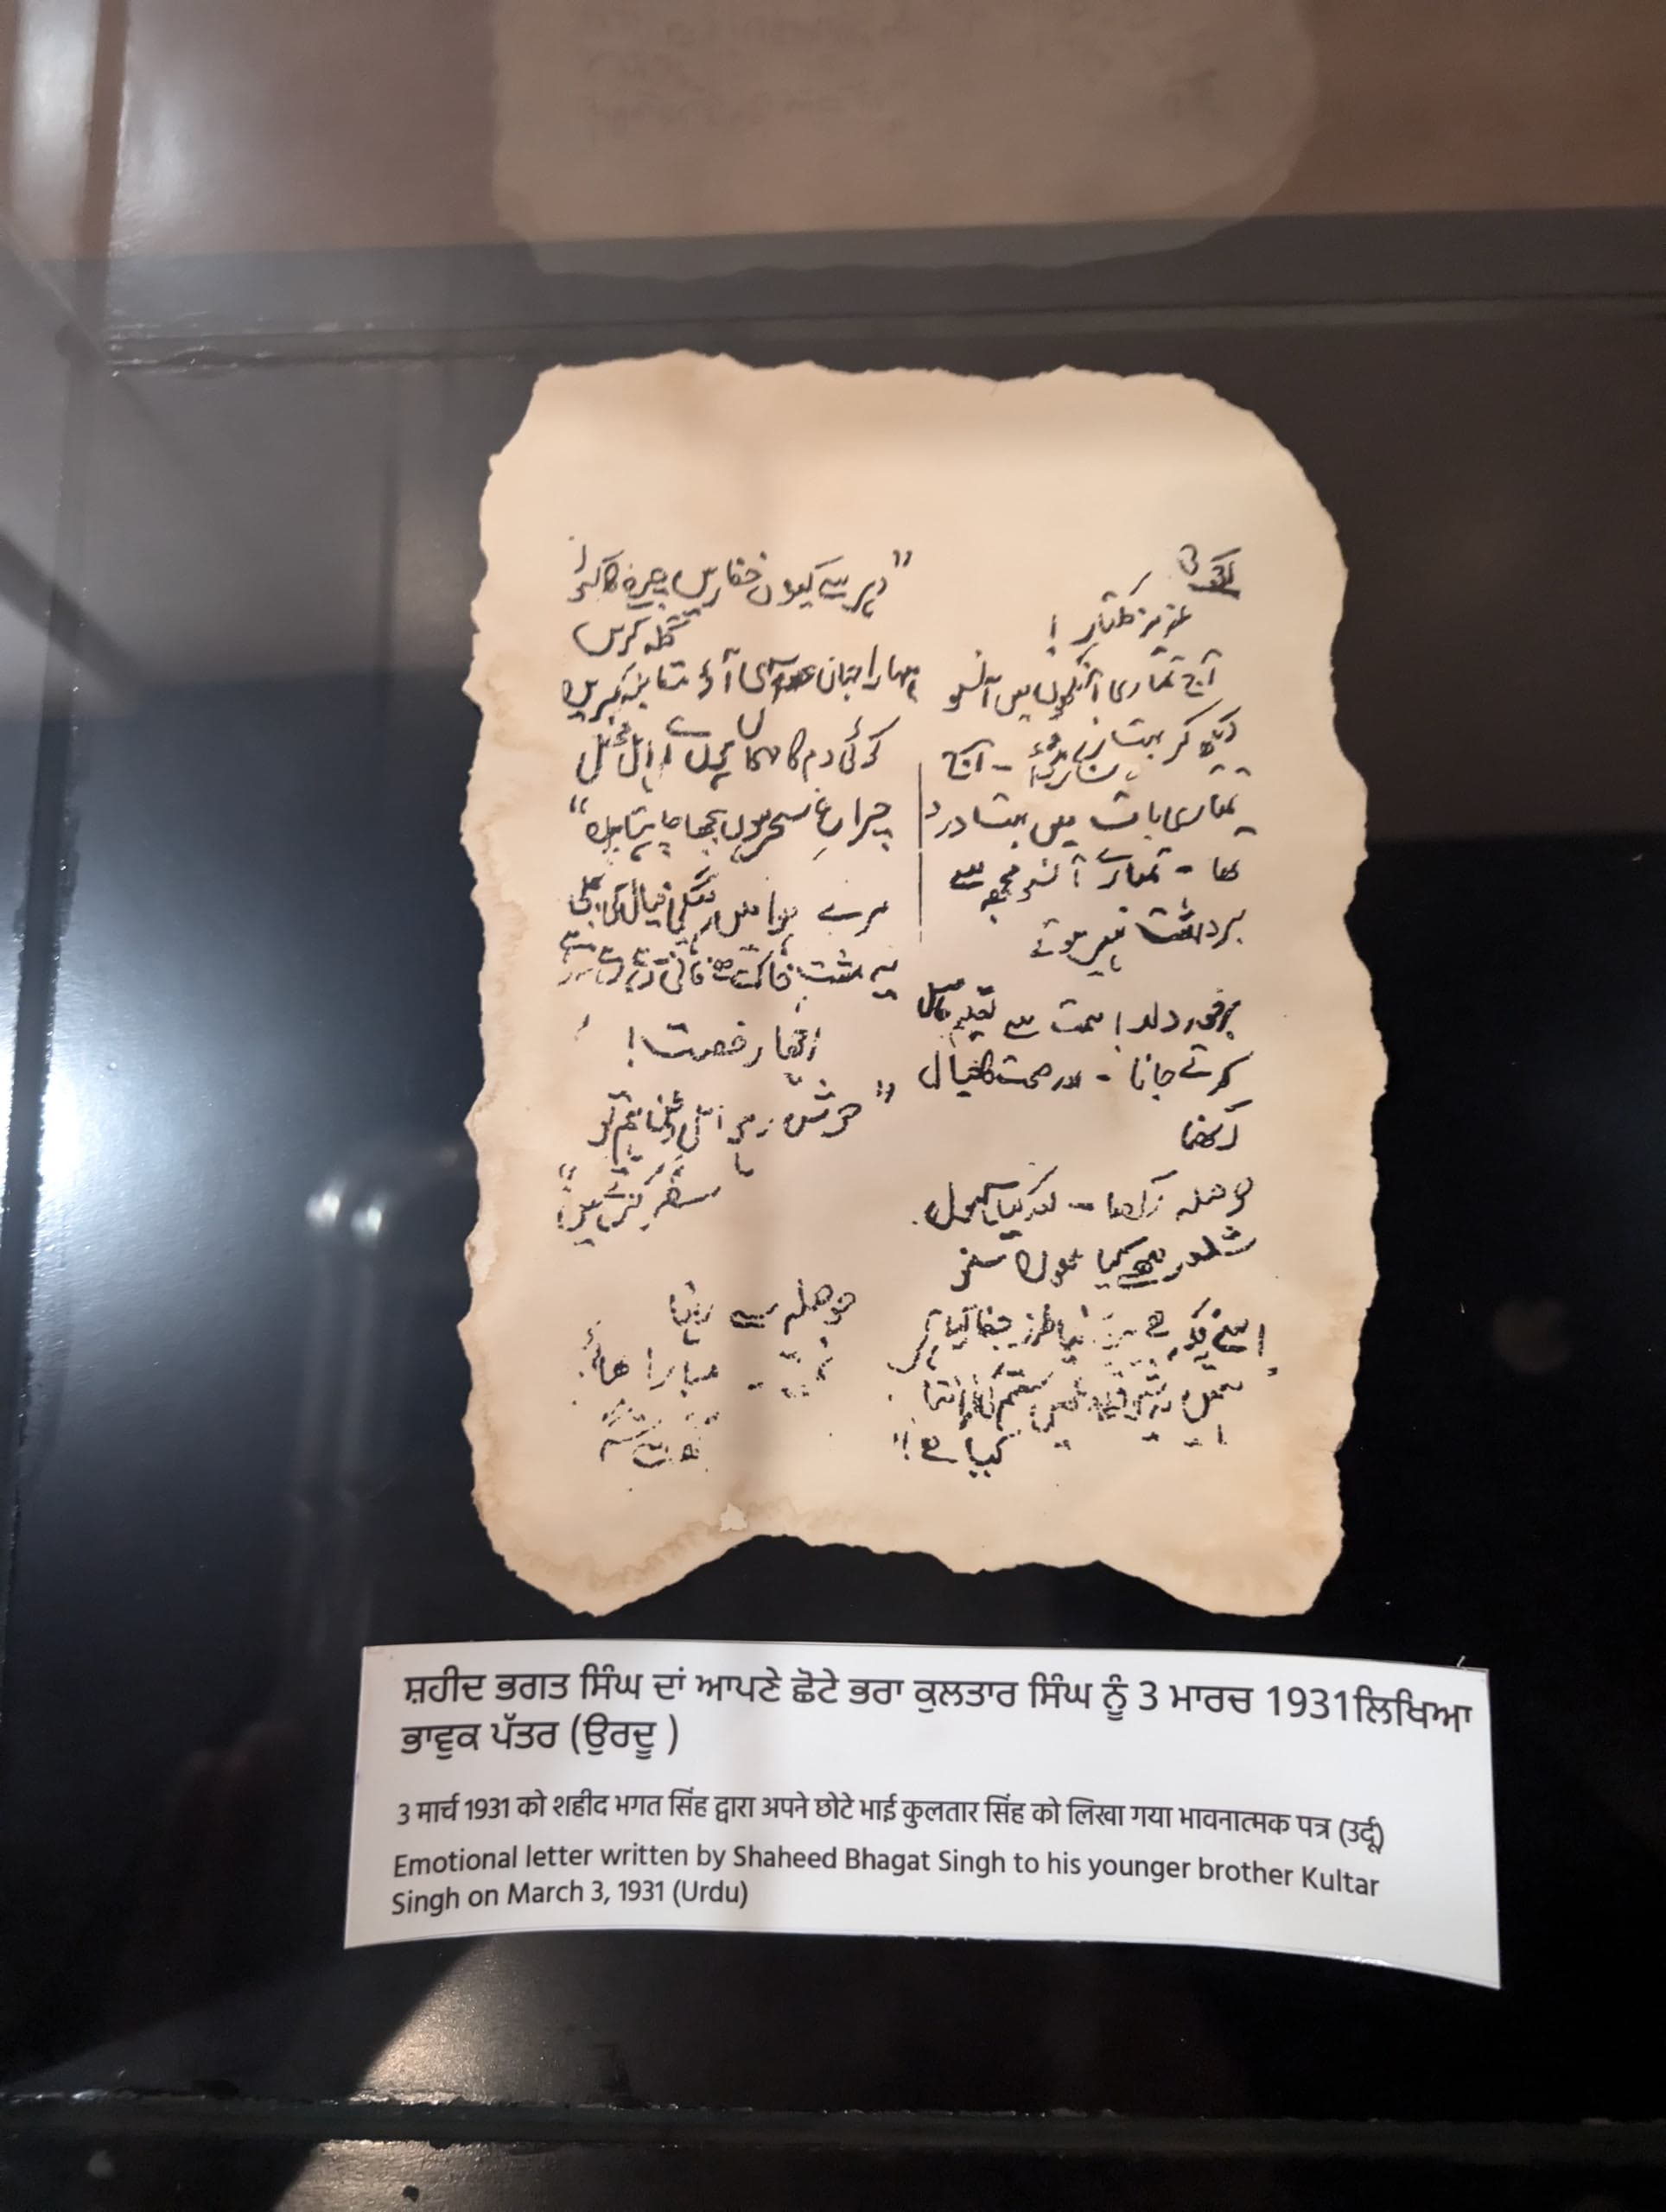 عزیز کلتار!
آج تمہاری آنکھوں میں آنسو
دیکھ کر بہت رنج ہوا - آج
تمہاری بات میں بہت درد
تھا - تمہارے آنسو مجھ سے
برداشت نہیں ہوتے
برخوردار! ہمت سے تعلیم حاصل
کرتے جانا - اور صحت کا خیال
رکھنا
حوصلہ رکھنا - اور کیا
شعروں میں کیا
اسے فکر ہے ہر دم نیا طرز جفا کیا ہے
ہمیں یہ شوق ہے دیکھیں ستم کی انتہا
کیا ہے!"
"دہر سے کیوں خفا رہیں چرخ کا کیوں
گلہ کریں
سارا جہاں عدو سہی آؤ مقابلہ کریں
کوئی دم کا مہماں ہوں اے اہل محفل
چراغ سحر ہوں بجھا چاہتا ہوں"
میرے ہوا میں رہے گی خیال کی بجلی
یہ مشت خاک ہے فانی رہے رہے نہ رہے
اچھا رخصت!
"خوش رہو اہل وطن ہم تو
سفر کرتے ہیں"
حوصلہ سے رہنا
تمہارا بھائی
بھگت سنگھ
ਸ਼ਹੀਦ ਭਗਤ ਸਿੰਘ ਦਾਂ ਆਪਣੇ ਛੋਟੇ ਭਰਾ ਕੁਲਤਾਰ ਸਿੰਘ ਨੂੰ 3 ਮਾਰਚ 1931ਲਿਖਿਆ
ਭਾਵੁਕ ਪੱਤਰ (ਉਰਦੂ )
3 मार्च 1931 को शहीद भगत सिंह द्वारा अपने छोटे भाई कुलतार सिंह को लिखा गया भावनात्मक पत्र (उर्दू)
Emotional letter written by Shaheed Bhagat Singh to his younger brother Kultar
Singh on March 3, 1931 (Urdu)